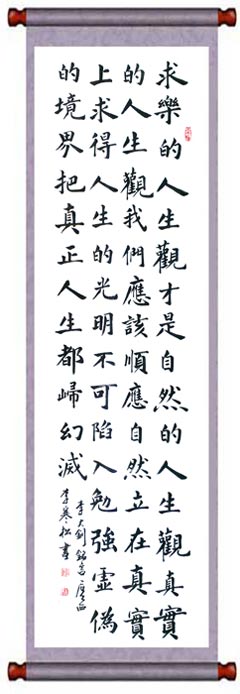 求樂的人生觀才是自然的人生觀真實
的人生觀我們應該順應自然立在真實
上求得人生的光明不可陷入勉強虛偽
的境界把真正人生都歸幻滅
李大釗銘言
李寒松書